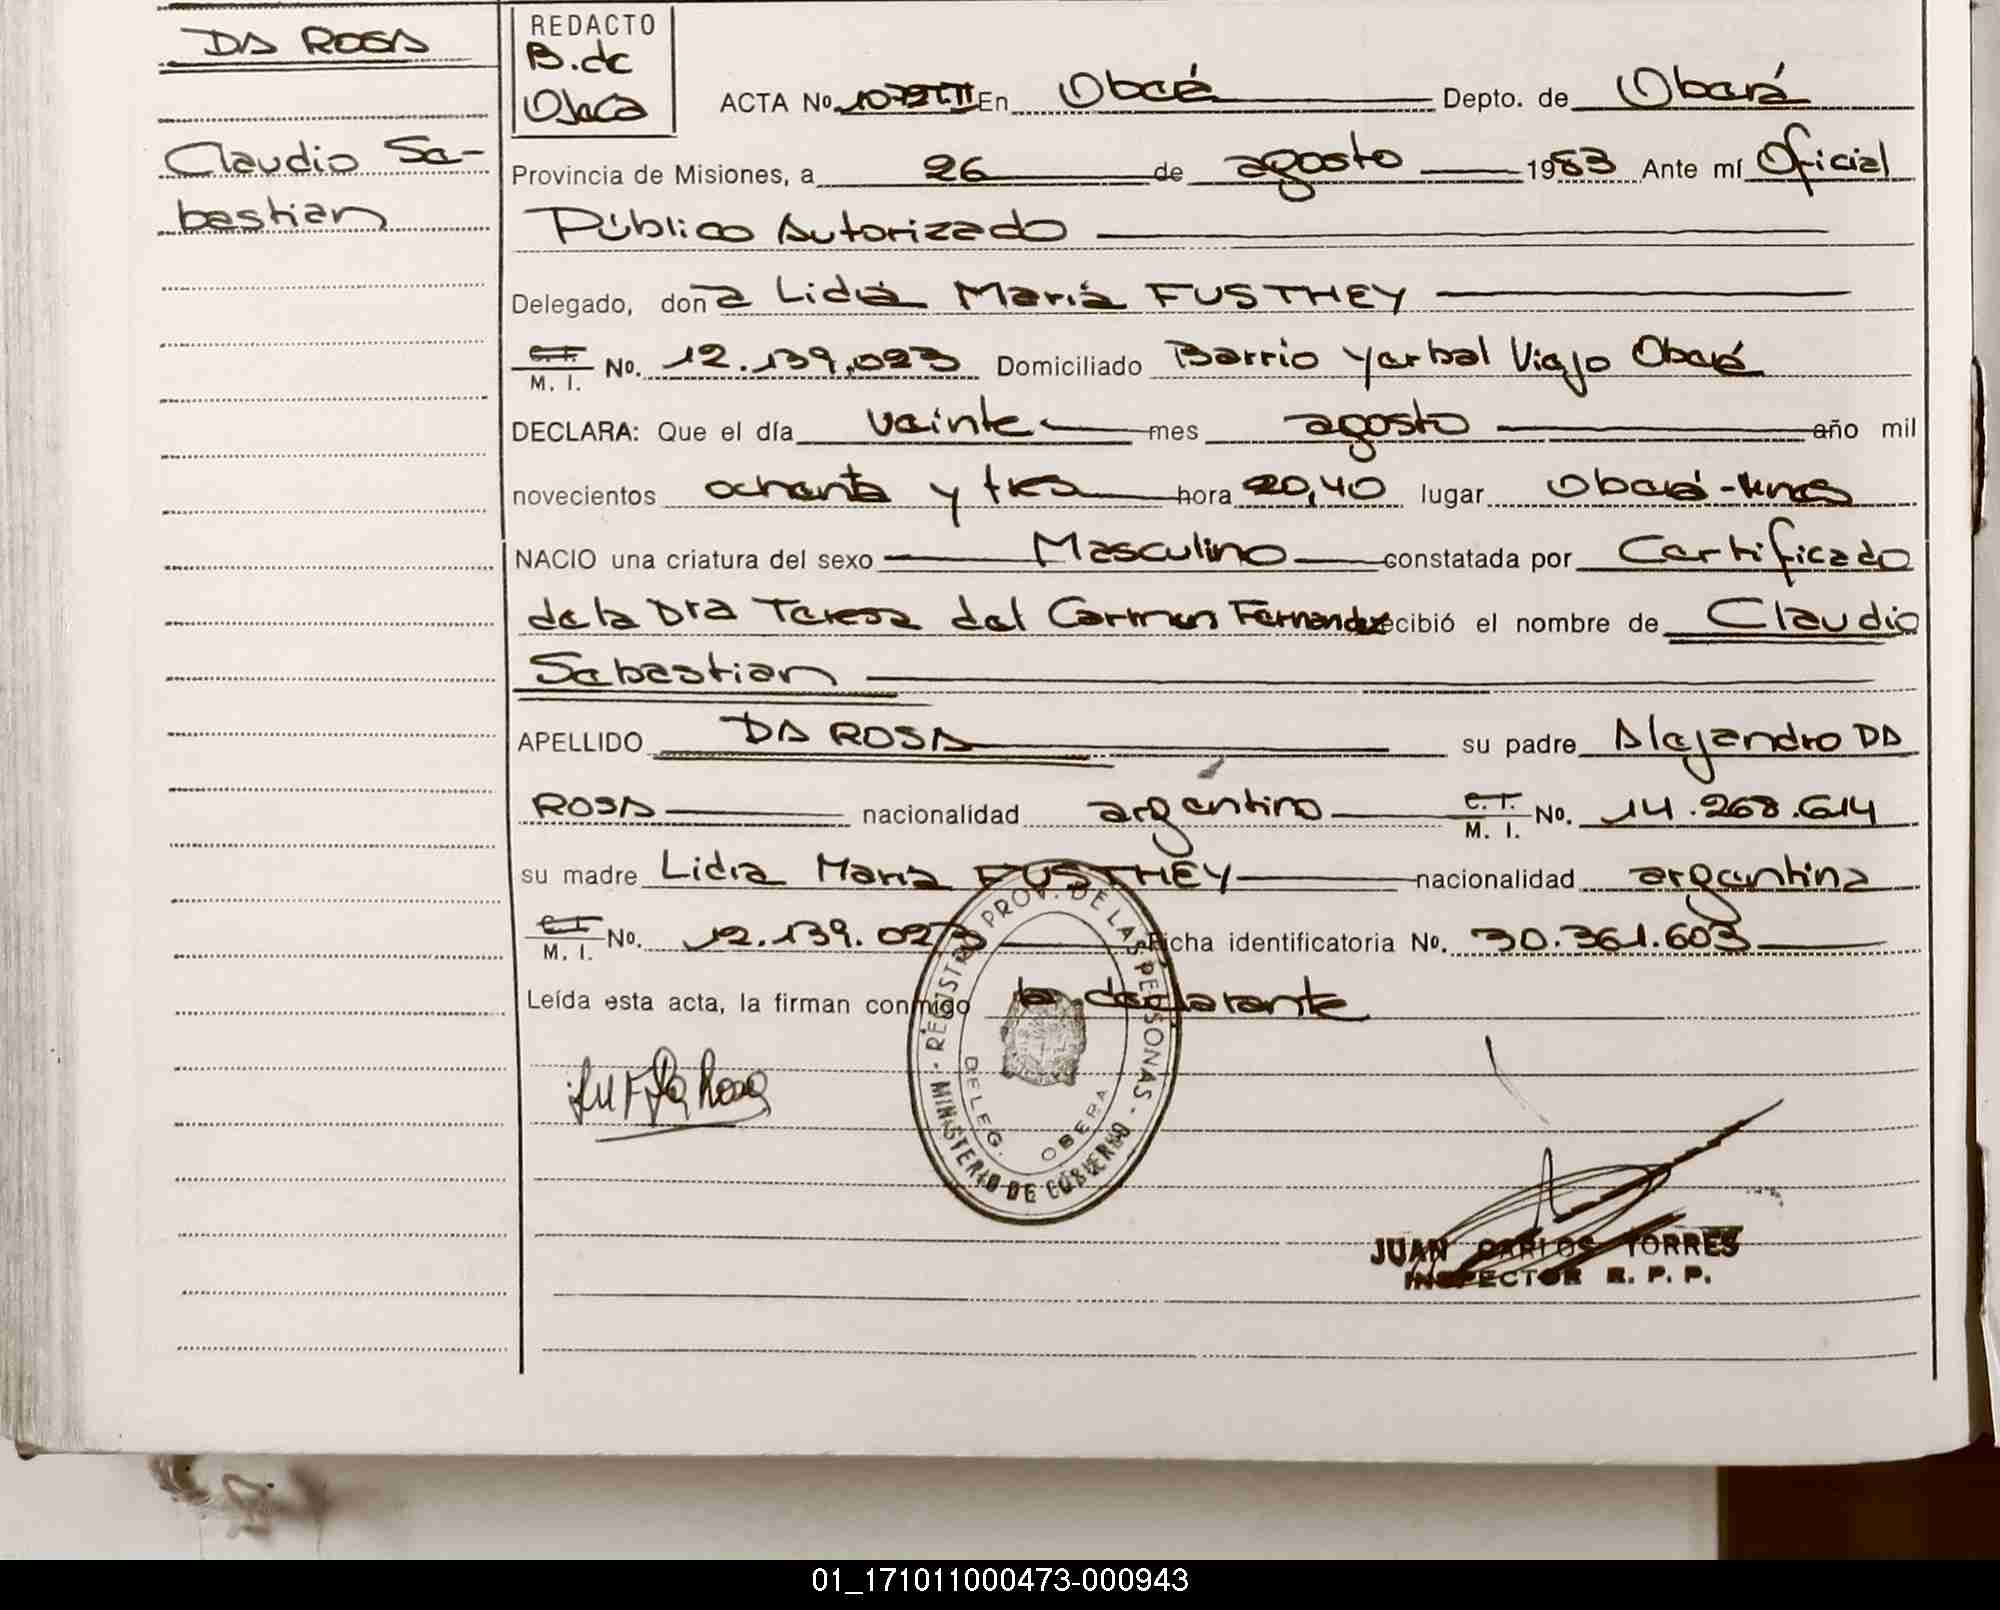 DA ROSA
Claudio Se-
bastian
REDACTO
B. de
ACTA No. En Oberá Depto. de Oberá
Provincia de Misiones, a 26 de agosto 1983 Ante mí Oficial
Público Autorizado
Delegado, don a Lidia Maria FUSTHEY
C.I. M. I. No. 12.139.023 Domiciliado Barrio Yerbal Viejo Oberá
DECLARA: Que el día veinte mes agosto año mil
novecientos ochenta y tres hora 20,40 lugar Oberá-Mnes
NACIO una criatura del sexo Masculino constatada por Certificado
de la Dra Teresa del Carmen Fernandez recibió el nombre de Claudio
Sebastian
APELLIDO DA ROSA su padre Alejandro DA
ROSA nacionalidad argentino C.I. M. I. No. 14.268.614
su madre Lidia Maria FUSTHEY nacionalidad argentina
C.I. M. I. No. 12.139.023 Ficha identificatoria No. 30.361.603
Leída esta acta, la firman conmigo la declarante
REGISTRO PROV. DE LAS PERSONAS - MINISTERIO DE GOBIERNO
DELEG. OBERA
JUAN CARLOS TORRES
INSPECTOR R. P. P.
01_171011000473-000943